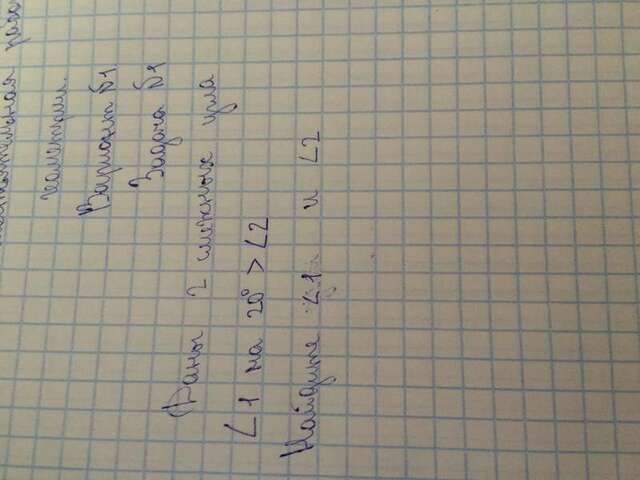 геометрии.
Вариант №1
Задача №1
Даны 2 смежных угла
∠1 на 20° > ∠2
Найдите ∠1 и ∠2